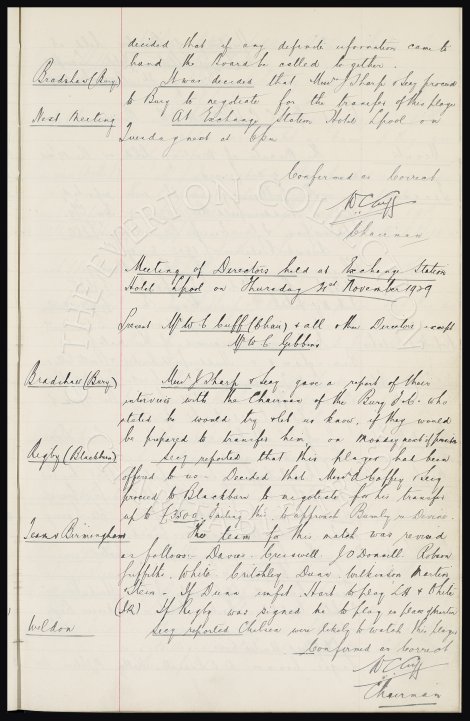 decided that if any definite information came to
hand the Board be called together.
Bradshaw (Bury) It was decided that Messrs J Sharp & Secy proceed
to Bury to negotiate for the transfer of this player
Next Meeting At Exchange Station Hotel Lpool on
Tuesday next at 6pm
Confirmed as Correct
W C Cuff
Chairman
Meeting of Directors held at Exchange Station
Hotel Lpool on Thursday 21st November 1929
Present Mr W C Cuff (Chair) & all other Directors except
Mr W C Gibbins
Bradshaw (Bury) Messrs J Sharp & Secy gave a report of their
interview with the Chairman of the Bury F.C. who
stated he would try & let us know, if they would
be prepared to transfer him, on Monday next
Rigby (Blackburn) Secy reported that this player had been
offered to us - Decided that Messrs A Coffey & Secy
proceed to Blackburn to negotiate for his transfer
up to £3500 failing this to approach Burnley re Devine.
Team v Birmingham The team for this match was revised
as follows:- Davies. Cresswell. J O'Donnell. Robson
Griffiths. White. Critchley. Dunn. Wilkinson. Martin
& Stein - If Dunn unfit Hart to play L H & White
(I R) If Rigby was signed he to play in place of Martin
Weldon Secy reported Chelsea were likely to watch this player
Confirmed as Correct
W C Cuff
Chairman
THE EVERTON COLLECTION